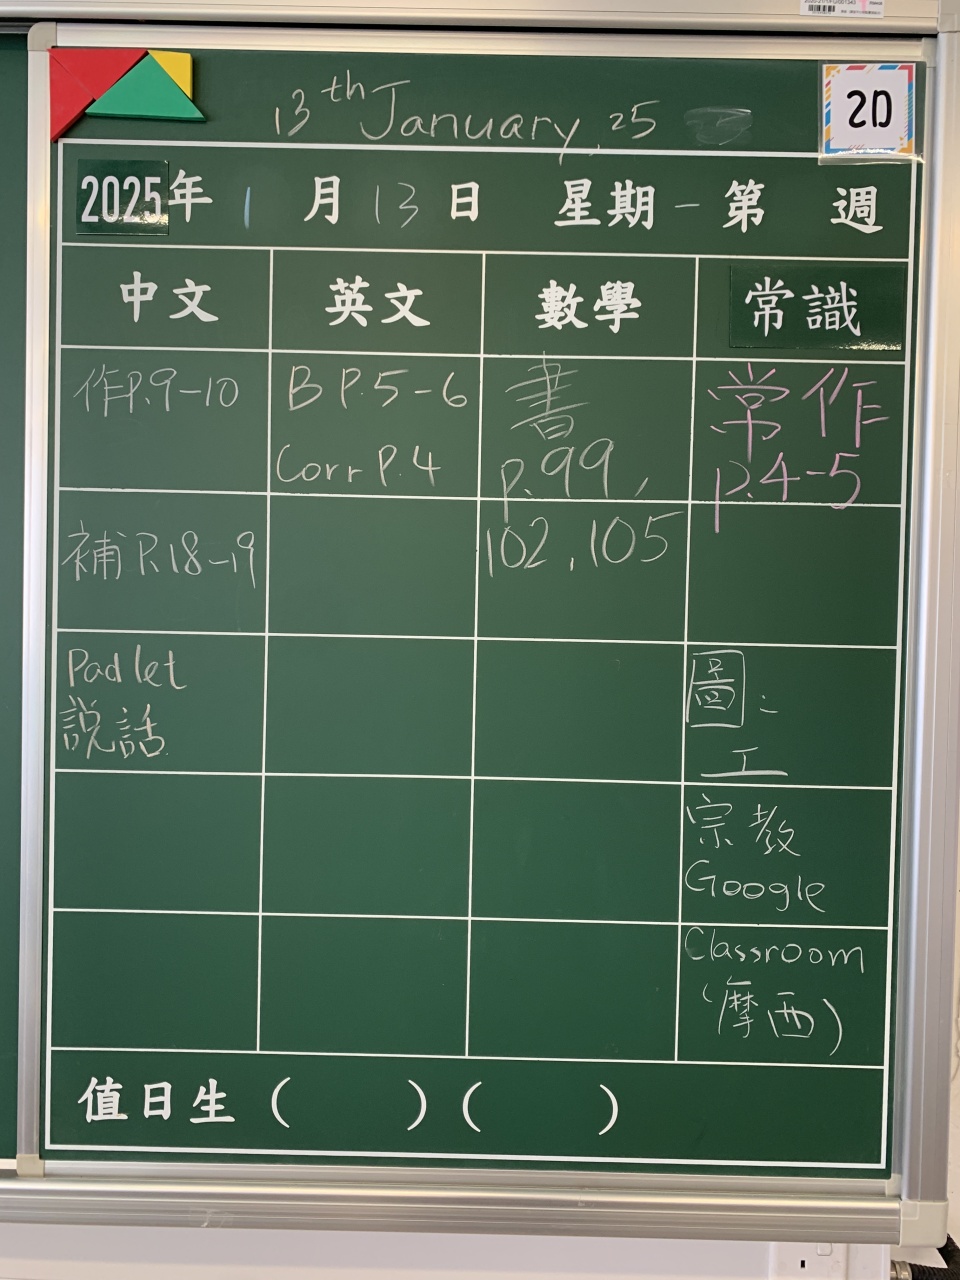 13th January, 25
2D
2025年 1 月 13 日 星期一 第 週
中文 英文 數學 常識
作P.9-10
補P.18-19
Padlet
説話
B P.5-6
Corr P.4
書
p.99,
102,105
常作
p.4-5
圖:
工
宗教
Google
Classroom
(摩西)
值日生 ( ) ( )